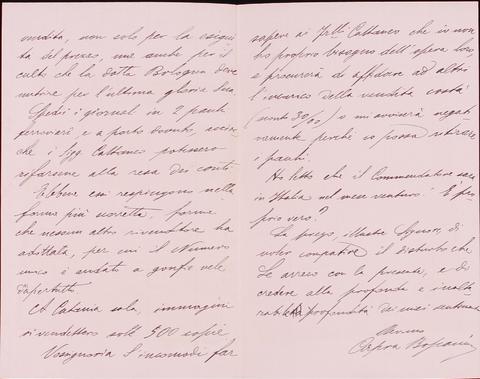 vendita, non solo per la esigui
tà del prezzo, ma anche per il
culto che la dotta Bologna deve
nutrire per l'ultima gloria sua.
Spedii i giornali in 2 pacchi
ferroviari e a porto dovuto, accioc
che i Sigg. Cattaneo potessero
rifarsene alla resa dei conti
Ebbene essi respingono nella
forma più scorretta, forma
che nessun altro rivenditore ha
adottata, per cui il Numero
unico è andato a gonfie vele
dapertutto.
A Catania sola, immagini
si vendettero 500 copie
Vossignoria s'incomodi far
sapere ai Flli Cattaneo che io non
ho proprio bisogno dell'opera loro,
e procurerà di affidare ad altri
l'incarico della vendita costà
(sconto 30%) o mi avviserà negat
ivamente perchè io possa ritirare
i pacchi.
Ho letto che il Commendatore sarà
in Italia nel mese venturo. È pro
prio vero?
La prego, Illustre Signore, di
voler compatire il disturbo che
Le arreco con la presente, e di
credere alla profonda e inalte
profondità di miei sentimenti